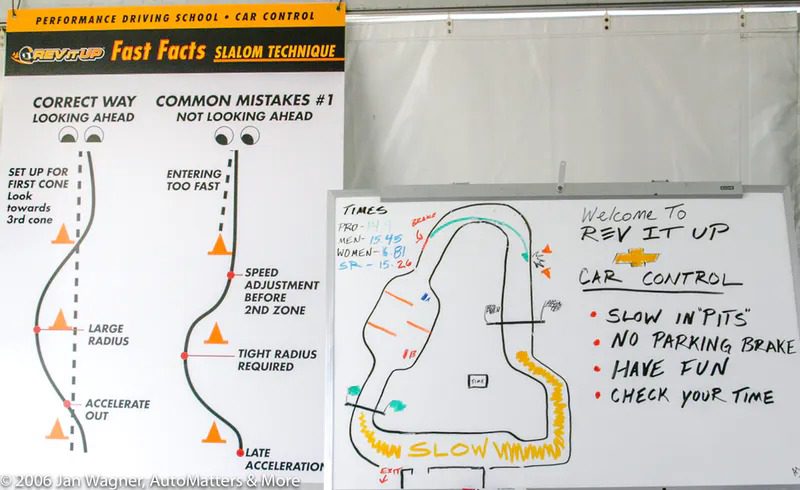 PERFORMANCE DRIVING SCHOOL • CAR CONTROL
REV IT UP Fast Facts SLALOM TECHNIQUE
CORRECT WAY
LOOKING AHEAD
SET UP FOR
FIRST CONE
Look
towards
3rd cone
LARGE
RADIUS
ACCELERATE
OUT
COMMON MISTAKES #1
NOT LOOKING AHEAD
ENTERING
TOO FAST
SPEED
ADJUSTMENT
BEFORE
2ND ZONE
TIGHT RADIUS
REQUIRED
LATE
ACCELERATION
TIMES
PRO-
MEN- 15.45
WOMEN-
SR - 15.26
BRAKE
SLOW
EXIT
Welcome To
REV IT UP
CAR CONTROL
• SLOW IN "PITS"
• NO PARKING BRAKE
• HAVE FUN
• CHECK YOUR TIME
© 2006 Jan Wagner, AutoMatters & More